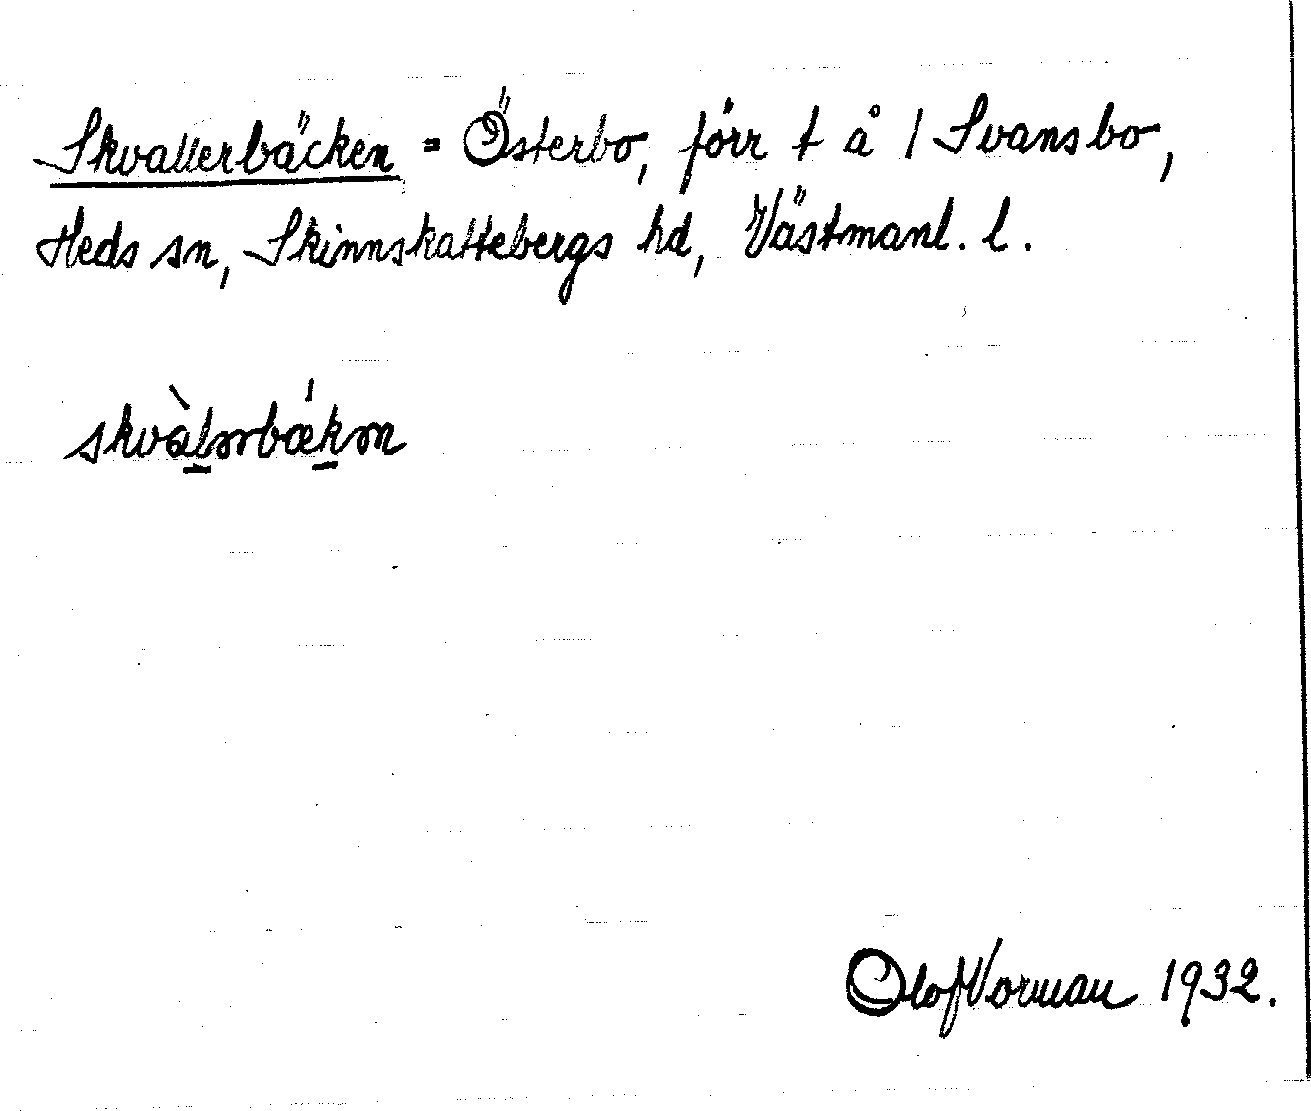 Skvallerbäcken = Österbo, förr t å / Svansbo,
Heds sn, Skinnskattebergs hd, Västmanl. l.
skvàlərbǽkən
Olof Vorman 1932.